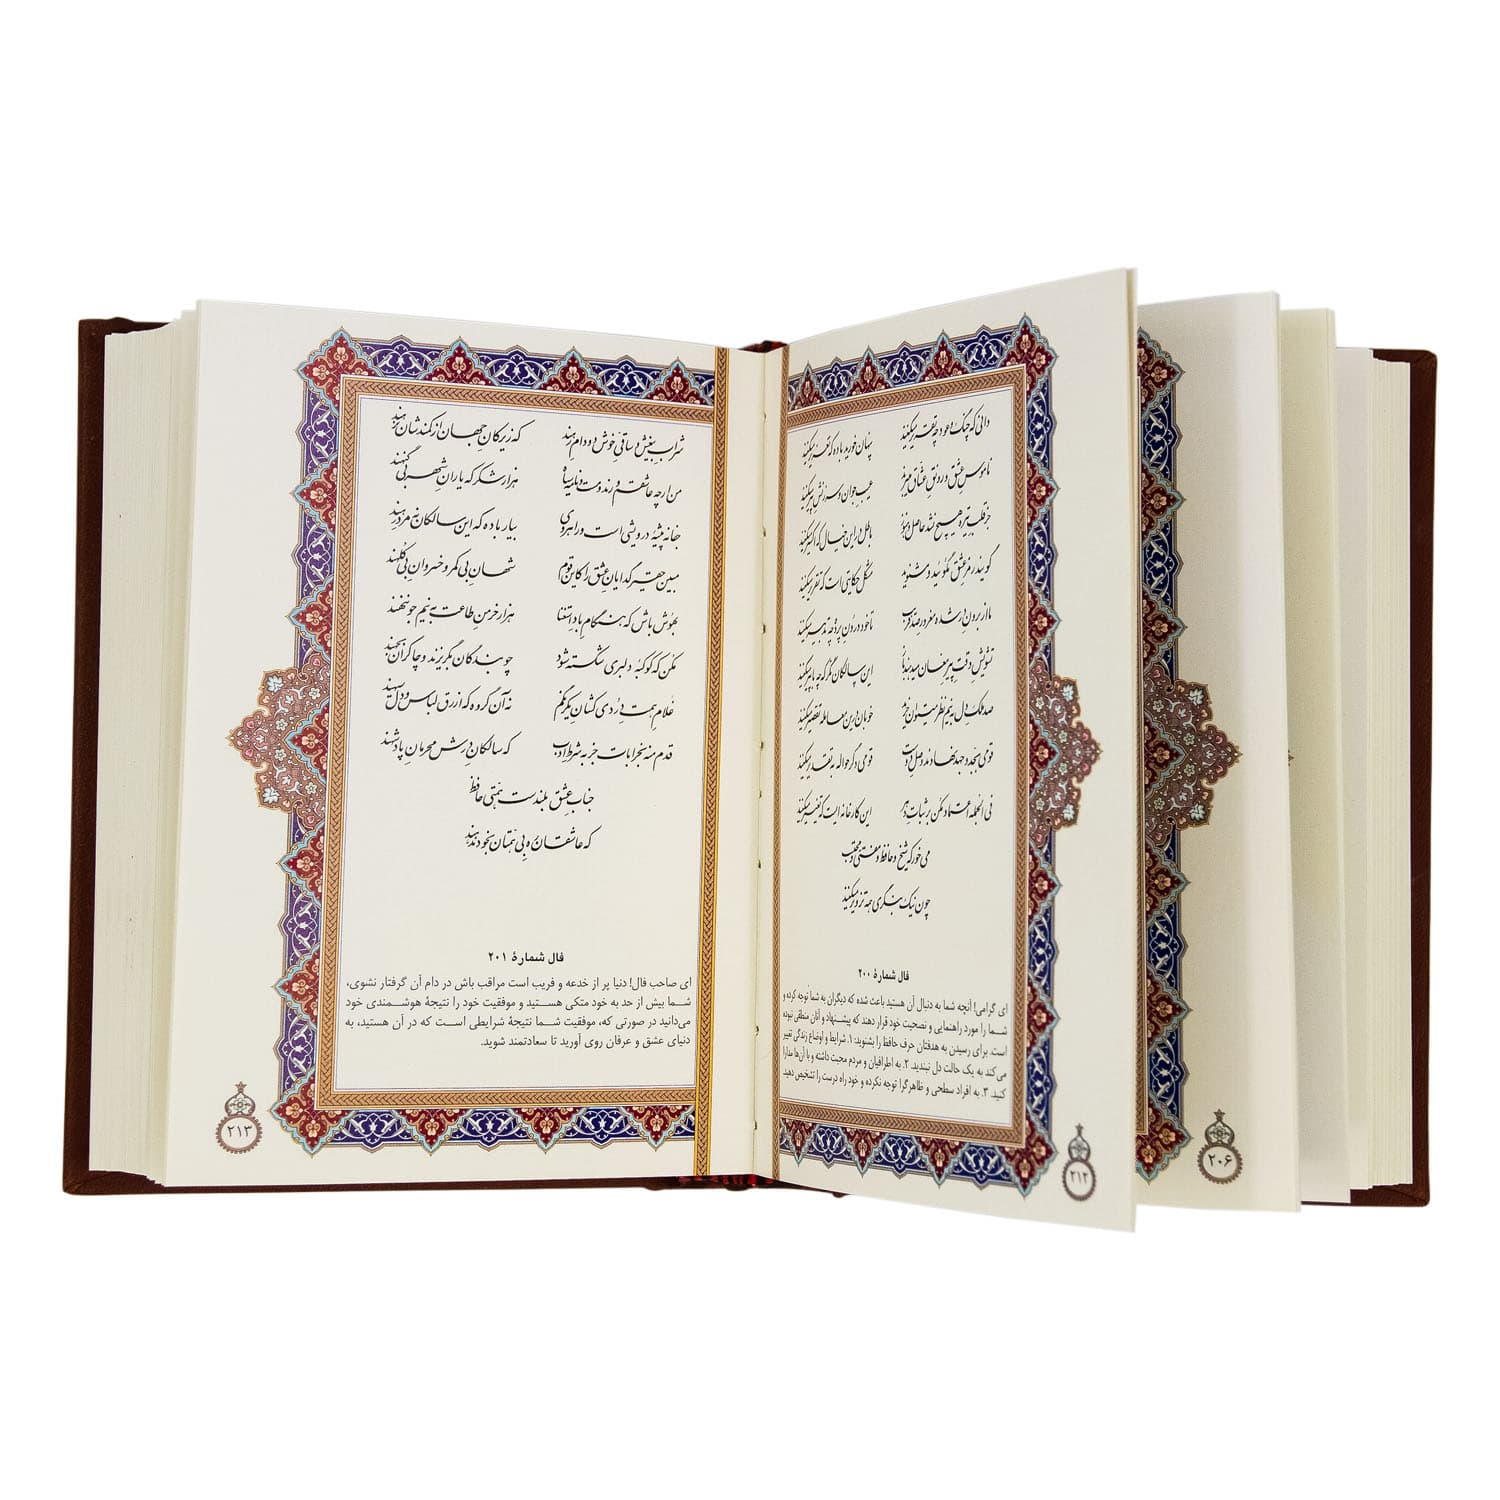 دانی که چنگ و عود چه تقریر میکنند پنهان خورید باده که تعزیر میکنند
ناموس عشق و رونق عشاق میبرند عیب جوان و سرزنش پیر میکنند
جز قلب تیره هیچ نشد حاصل و هنوز باطل در این خیال که اکسیر میکنند
گویند رمز عشق مگوئید و مشنوید مشکل حکایتی است که تقریر میکنند
ما از برون در شده مغرور صد فریب تا خود درون پرده چه تدبیر میکنند
تشویش وقت پیر مغان میدهند باز این سالکان نگر که چه با پیر میکنند
صد ملک دل به نیم نظر میتوان خرید خوبان در این معامله تقصیر میکنند
قومی به جد و جهد نهادند وصل دوست قومی دگر حواله به تقدیر میکنند
فی الجمله اعتماد مکن بر ثبات دهر این کارخانه ایست که تغییر میکنند
می خور که شیخ و حافظ و مفتی و محتسب
چون نیک بنگری همه تزویر میکنند
فال شمارهٔ ۲۰۰
ای گرامی! آنچه شما به دنبال آن هستید باعث شده که دیگران به شما توجه کرده و
شما را مورد راهنمایی و نصحیت خود قرار دهند که پیشنهاد و آنان منطقی نبوده
است. برای رسیدن به هدفتان حرف حافظ را بشنوید: ۱. شرایط و اوضاع زندگی تغییر
می‌کند به یک حالت دل نبندید. ۲. به اطرافیان و مردم محبت داشته و با آن‌ها مدارا
کنید. ۳. به افراد سطحی و ظاهرگرا توجه نکرده و خود راه درست را تشخیص دهید.
۲۱۲
شراب بیغش و ساقی خوش دو دام رهند که زیرکان جهان از کمندشان نرهند
من ارچه عاشقم و رند و مست و نامه سیاه هزار شکر که یاران شهر بی گنهند
جفا نه پیشهٔ درویشی است و راهروی بیار باده که این سالکان نه مرد رهند
مبین حقیر گدایان عشق را کاین قوم شهان بی کمر و خسروان بی کلهند
بهوش باش که هنگام باد استغنا هزار خرمن طاعت به نیم جو ننهند
مکن که کوکبهٔ دلبری شکسته شود چو بندگان بگریزند و چاکران بجهند
غلام همت دردی کشان یکرنگم نه آن گروه که ازرق لباس و دل سیهند
قدم منه بخرابات جز به شرط ادب که سالکان درش محرمان پادشهند
جناب عشق بلندست همتی حافظ
که عاشقان ره بی همتان بخود ندهند
فال شمارهٔ ۲۰۱
ای صاحب فال! دنیا پر از خدعه و فریب است مراقب باش در دام آن گرفتار نشوی،
شما بیش از حد به خود متکی هستید و موفقیت خود را نتیجهٔ هوشمندی خود
می‌دانید در صورتی که، موفقیت شما نتیجهٔ شرایطی است که در آن هستید، به
دنیای عشق و عرفان روی آورید تا سعادتمند شوید.
۲۱۳
۲۰۶